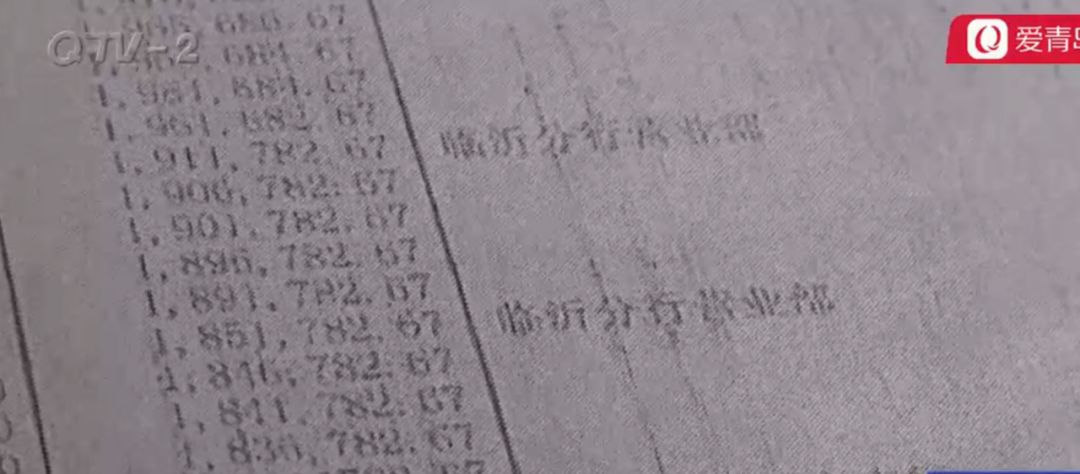 QTV-2
爱青岛
1,961,882.67
1,911,782.67 临沂分行营业部
1,906,782.67
1,901,782.67
1,896,782.67
1,891,782.67
1,851,782.67 临沂分行营业部
1,846,782.67
1,841,782.67
1,836,782.67